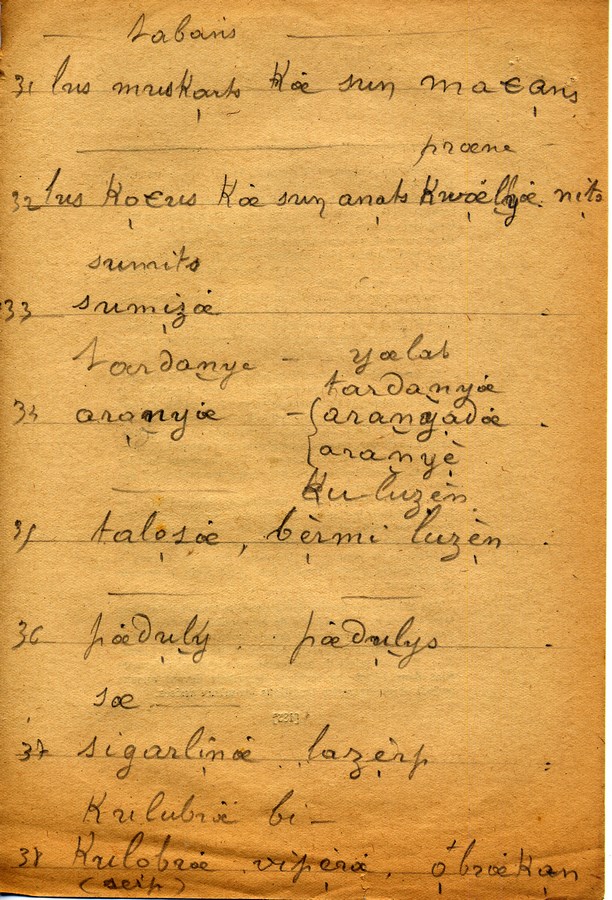 — tabans —
31 lus muskarts kœ sun macans
— prœne
32 lus kocus kœ sun anats kwœllyœ. nits
sumits
33 sumizœ
tardanye — yœlat
tardanyœ
34 aranyœ — aranyadœ
aranyè
ku luzèn
35 talosœ, bèrmi luzèn
36 pœduly. pœdulys
sœ
37 sigarlinœ lazèrp
kulubrœ bi—
38 kulobrœ vipèrœ, obrœkan
(serp)